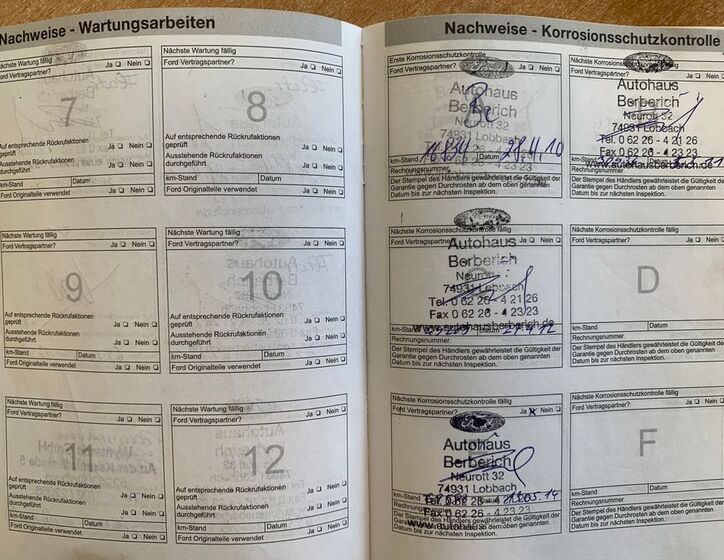 Nachweise - Wartungsarbeiten
7
Ford Vertragspartner? Ja Nein
Auf entsprechende Rückrufaktionen
geprüft Ja Nein
Ausstehende Rückrufaktionen
durchgeführt Ja Nein
km-Stand Datum
Ford Originalteile verwendet
Nächste Wartung fällig
Ford Vertragspartner? Ja Nein
8
Auf entsprechende Rückrufaktionen
geprüft Ja Nein
Ausstehende Rückrufaktionen
durchgeführt Ja Nein
km-Stand Datum
Ford Originalteile verwendet
Nächste Wartung fällig
Ford Vertragspartner? Ja Nein
9
Auf entsprechende Rückrufaktionen
geprüft Ja Nein
Ausstehende Rückrufaktionen
durchgeführt Ja Nein
km-Stand Datum
Ford Originalteile verwendet
Nächste Wartung fällig
Ford Vertragspartner? Ja Nein
10
Auf entsprechende Rückrufaktionen
geprüft Ja Nein
Ausstehende Rückrufaktionen
durchgeführt Ja Nein
km-Stand Datum
Ford Originalteile verwendet
Nächste Wartung fällig
Ford Vertragspartner? Ja Nein
11
Auf entsprechende Rückrufaktionen
geprüft Ja Nein
Ausstehende Rückrufaktionen
durchgeführt Ja Nein
km-Stand Datum
Ford Originalteile verwendet
Nächste Wartung fällig
Ford Vertragspartner? Ja Nein
12
Auf entsprechende Rückrufaktionen
geprüft Ja Nein
Ausstehende Rückrufaktionen
durchgeführt Ja Nein
km-Stand Datum
Ford Originalteile verwendet
Nachweise - Korrosionsschutzkontrolle
Erste Korrosionsschutzkontrolle
Ford Vertragspartner? Ja Nein
Autohaus
Berberich
Neurott 32
74931 Lobbach
km-Stand Datum
Rechnungsnummer
Der Stempel des Händlers gewährleistet die Gültigkeit der
Garantie gegen Durchrosten ab dem oben genannten
Datum bis zur nächsten Inspektion.
Nächste Korrosionsschutzkontrolle
Ford Vertragspartner? Ja Nein
Autohaus
Berberich
Neurott 32
74931 Lobbach
Tel. 0 62 26 - 4 21 26
Fax 0 62 26 - 4 23 23
www.autohausberberich.de
Rechnungsnummer
Der Stempel des Händlers gewährleistet die Gültigkeit der
Garantie gegen Durchrosten ab dem oben genannten
Datum bis zur nächsten Inspektion.
Nächste Korrosionsschutzkontrolle fällig
Ford Vertragspartner? Ja Nein
Autohaus
Berberich
Neurott
74931 Lobbach
Tel. 0 62 26 - 4 21 26
Fax 0 62 26 - 4 23 23
www.autohausberberich.de
km-Stand Datum
Rechnungsnummer
Der Stempel des Händlers gewährleistet die Gültigkeit der
Garantie gegen Durchrosten ab dem oben genannten
Datum bis zur nächsten Inspektion.
Nächste Korrosionsschutzkontrolle fällig
Ford Vertragspartner? Ja Nein
D
km-Stand Datum
Rechnungsnummer
Der Stempel des Händlers gewährleistet die Gültigkeit der
Garantie gegen Durchrosten ab dem oben genannten
Datum bis zur nächsten Inspektion.
Nächste Korrosionsschutzkontrolle fällig
Ford Vertragspartner? Ja Nein
Autohaus
Berberich
Neurott 32
74931 Lobbach
Fax 0 62 26 - 4 23 23
www.autohaus
Der Stempel des Händlers gewährleistet die Gültigkeit der
Garantie gegen Durchrosten ab dem oben genannten
Datum bis zur nächsten Inspektion.
Nächste Korrosionsschutzkontrolle fällig
Ford Vertragspartner? Ja Nein
F
km-Stand Datum
Rechnungsnummer
Der Stempel des Händlers gewährleistet die Gültigkeit der
Garantie gegen Durchrosten ab dem oben genannten
Datum bis zur nächsten Inspektion.